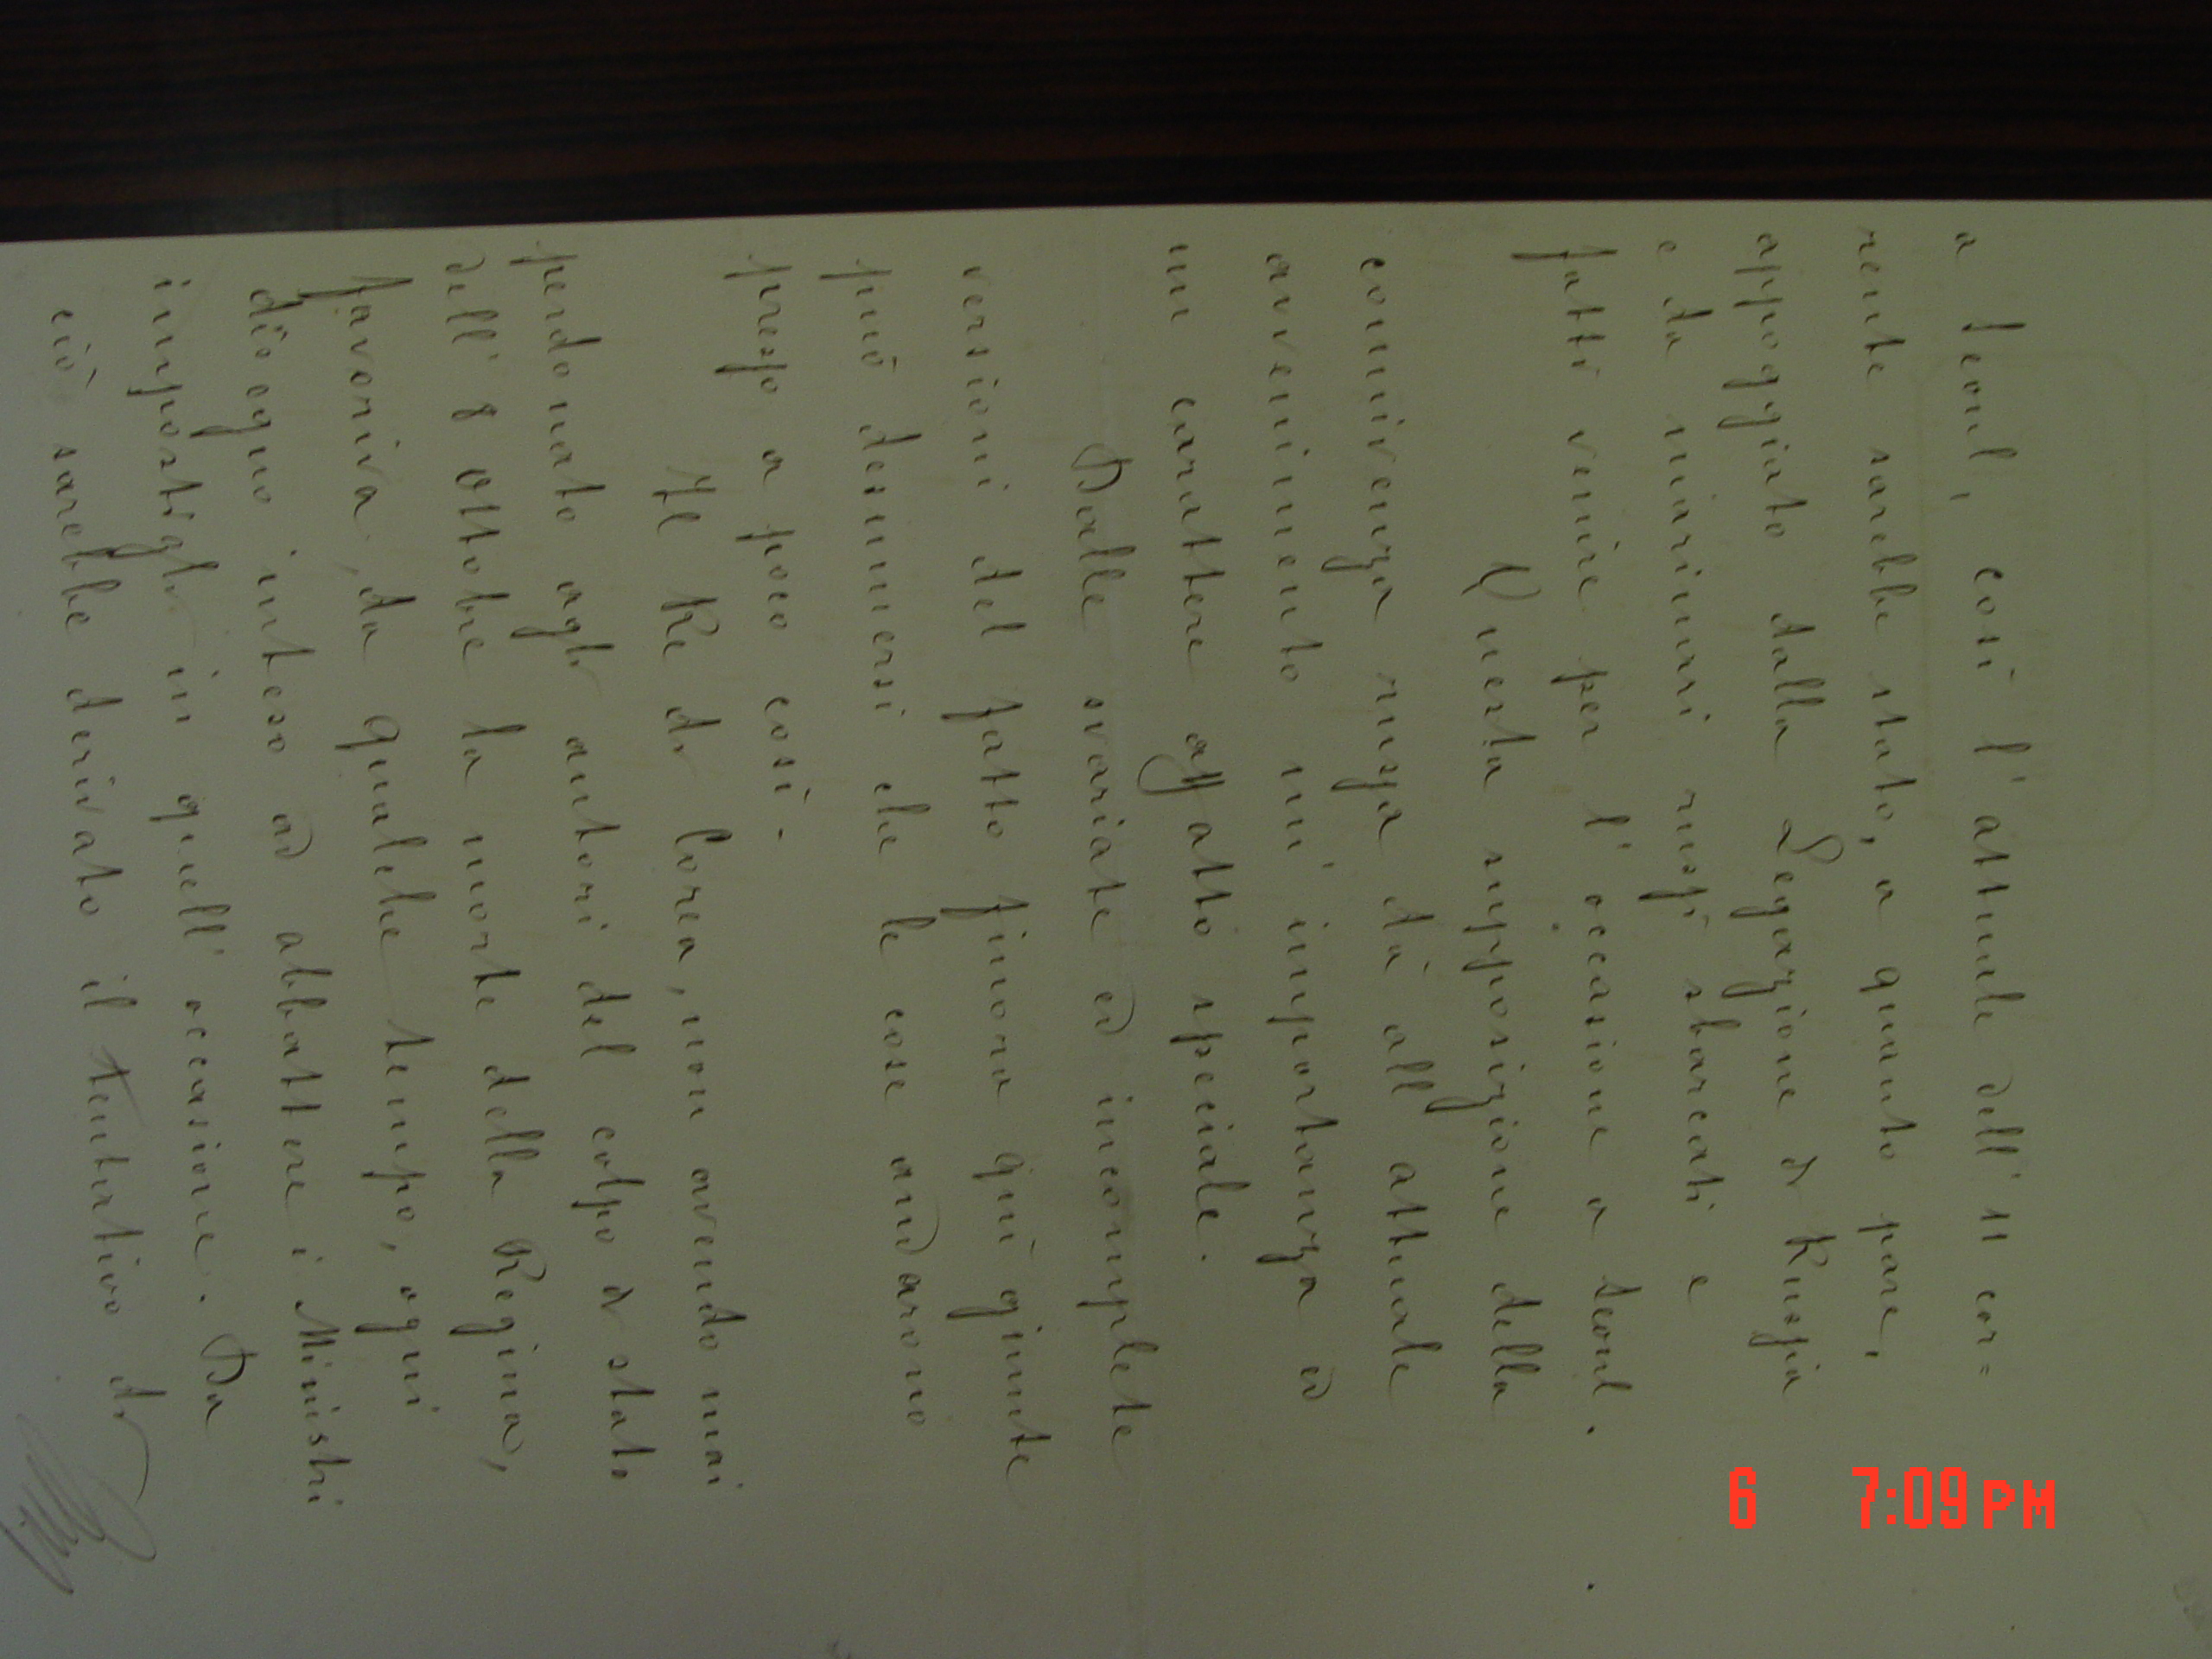 a Seoul, così l'attuale dell'11 cor=
rente sarebbe stato, a quanto pare,
appoggiato dalla Legazione di Russia
e da marinari russi sbarcati e
fatti venire per l'occasione a Seoul.
Questa supposizione della
connivenza russa dà all'attuale
avvenimento un'importanza ed
un carattere affatto speciale.
Dalle svariate ed incomplete
versioni del fatto finora qui giunte
può desumersi che le cose andarono
presso a poco così.
Il Re di Corea, non avendo mai
perdonato agli autori del colpo di stato
dell'8 Ottobre la morte della Regina,
favoriva, da qualche tempo, ogni
disegno inteso ad abbattere i Ministri
impostigli in quell'occasione. Da
ciò sarebbe derivato il tentativo di
6 7:09PM